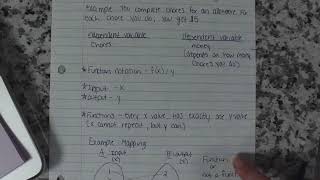 Example: You complete chores for an allowance. For
each chore you do, you get $5.
Independent variable
chores
Dependent variable
money
(depends on how many
chores you do)
*Function notation - f(x) / y
*Input - x
*Output - y
*Functions - every x value has exactly one y value
(x cannot repeat, but y can)
Example Mapping
A Input
(x)
B Output
(y)
1
2
Function
or
not a function